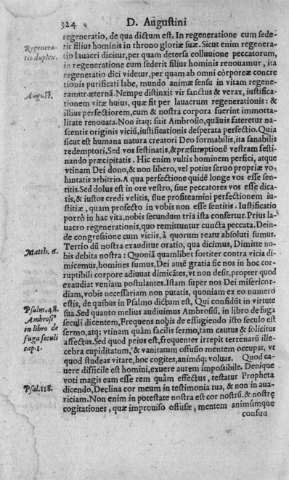 324 D. Augustini
regeneratio, de qua dictum est. In regeneratione cum sede-
Regenera-
tio duplex.
rit filius hominis in throno gloriæ suæ. Sicut enim regenera-
tio lauacri dicitur, per quam detersa colluuione peccatorum,
in regeneratione cum sederit filius hominis renouamur, ita
regeneratio dici videtur, per quam ab omni corporeæ concre
tionis purificati labe, mundo animæ sensu in vitam regene-
August.
ramur æternã. Nempe distãtia vit sanctus & verax, iustifica-
tionem vitæ huius, quæ fit per lauacrum regenerationis: &
illius perfectiorem, cum & nostra corpora fuerint immorta-
litate renouata. Non itaq; sine Ambrosio, quãuis fateretur na-
scentis originis viciũ, iustificationis desperata perfectio. Quia
sicut est humana natura creatori Deo formabilis, ita sanabilis
redemptori. Sed vos festinatis, & præsumptionẽ vestram festi-
nando præcipitatis. Hic enim vultis hominem perfici, atque
vtinam Dei dono, & non libero, vel potius seruo propriæ vo-
luntatis arbitrio. A qua perfectione quidẽ longe vos esse sen-
titis. Sed dolus est in ore vestro, siue peccatores vos esse dica-
tis, & iustos credi velitis, siue profiteamini perfectionem iu-
stitiæ, quam prosecto in vobis non esse sentitis. Iustificatio
porrò in hac vita, nobis secundum tria ista confertur. Prius la-
uacro regenerationis, quo remittuntur cuncta peccata. Dein-
de congressione cum vitijs, à quorum reatu absoluti sumus.
Matth. 6.
Tertio dũ nostra exauditur oratio, qua dicimus, Dimitte no-
bis debita nostra: Quoniã quamlibet fortiter contra vitia di-
micemus, homines sumus. Dei autẽ gratia sic nos in hoc cor-
ruptibili corpore adiuuat dimicãtes, vt non desit, propter quod
exaudiat veniam postulantes. Illam super nos Dei misericor-
diam, vobis necessariam non putatis, quoniam ex eo numero
estis, de quibus in Psalmo dictum est, Qui confidũt in virtute
Psalm. 48.
Ambros.
in libro de
fuga seculi
cap. 1.
sua. Sed quanto melius audiuimus Ambrosiũ, in libro de fuga
seculi dicentem, Frequens nobis de effugiendo isto seculo est
sermo, atq; vtinam quàm facilis sermo, tam cautus & solicitus
affectus. Sed quod prius est, frequenter irrepit terrenarũ ille-
cebra cupiditatum, & vanitatum offusio mentem occupat, ve
quod studeas vitare, hoc cogites, animóq; voluas. Quod caue-
re difficile est homini, exuere autem impossibile. Denique
voti magis eam esse rem quàm effectus, testatur Propheta
Psal. 118.
dicendo, Declina cor meum in testimonia tua, & non in aua-
riciam. Non enim in potestate nostra est cor nostrũ, & nostræ
cogitationes, quæ improuiso offusæ, mentem animumque
confun